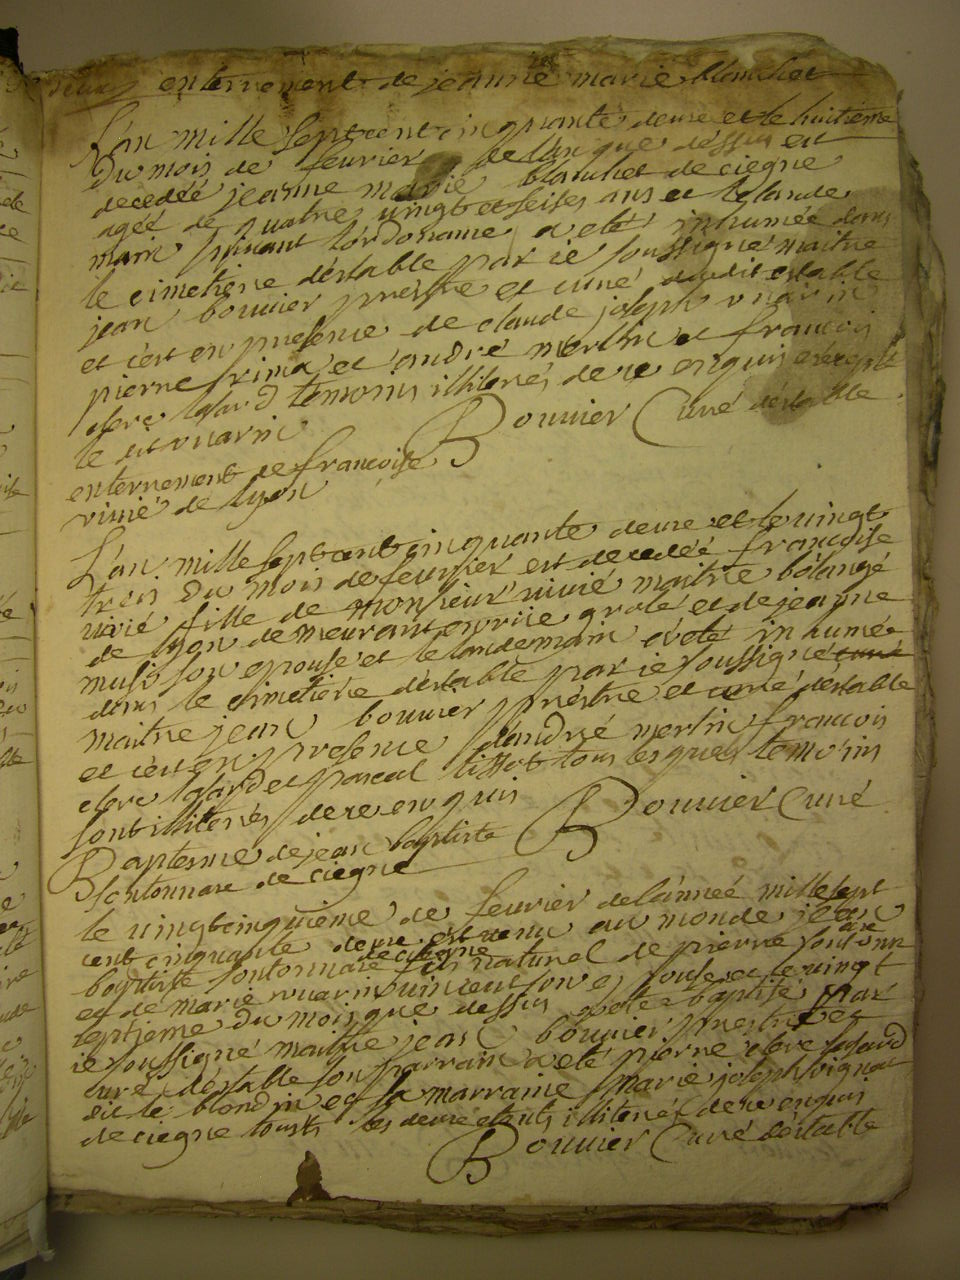 enterrement de jeanne marie blanchet
L'an mille sept cent cinquante deux et le huitième
du mois de feurier de l'an que dessus est
decedéé jeanne marie blanchet de ciegne
agéé de quatre uingt et seises ans et le lande
main suiuant l'ordonanse a eté inhumée dans
le cimetiere d'estable par ie soussigné maitre
jean bouuier prestre et curé dudit estable
et c'est en presense de claude joseph uuarin
pierre et d'andré merlin et francois
clerc temoins illiterés de ce enquis excepté
le dit uuarin Bouuier Curé d'estable
enterrement de francoise
viuié de lyon
L'an mille sept cent cinquante deux et le uingt
trois du mois de feurier est decedéé francoise
uiuié fille de monsieur uiuié maitre bolangé
de lyon demeurant en rüe grolé et de jeanne
son epouse et le landemain a eté inhumée
dans le cimetiere d'estable par ie soussigné curé
maitre jean bouuier prestre et curé d'estable
et c'est en presense d'andré merlin francois
clerc et pascal tissot tous lesquels temoins
sont illiterés de ce enquis Bouuier Curé
Baptesme de jean baptiste
fontonnare de ciegne
le uingtcinquième de feurier de l'année mille sept
cent cinquante deux est uenu au monde jean
de ciegne
baptiste fontonnare fils naturel de pierre
et de marie uuarin son epouse et le uingt
septieme du mois que dessus a eté baptisé par
ie soussigné maitre jean bouuier prestre et
curé d'estable son parrain a eté pierre clerc
dit le blondin et sa marraine marie joseph
de ciegne tous les deux etants illiterés de ce enquis
Bouuier Curé d'estable